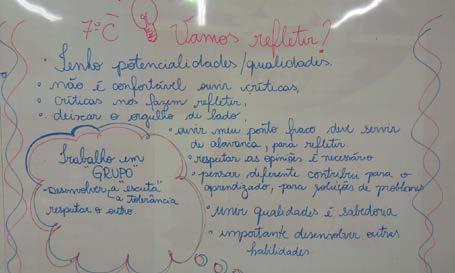 7º C Vamos refletir?
• Tenho potencialidades/qualidades.
• não é confortável ouvir críticas,
• críticas nos fazem refletir,
• deixar o orgulho de lado,
• ouvir meu ponto fraco deve servir
de alavanca, para refletir.
• respeitar as opiniões é necessário
• pensar diferente contribui para o
aprendizado, para solução de problemas
• unir qualidades é sabedoria
• importante desenvolver outras
habilidades.
Trabalho em
"GRUPO"
• Desenvolver, a "escuta"
a tolerância
respeitar o outro.